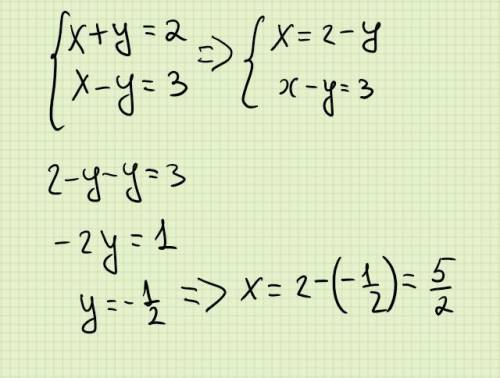 x+y=2 => x=2-y
x-y=3 x-y=3
2-y-y=3
-2y=1
y=-1/2 => x=2-(-1/2)=5/2